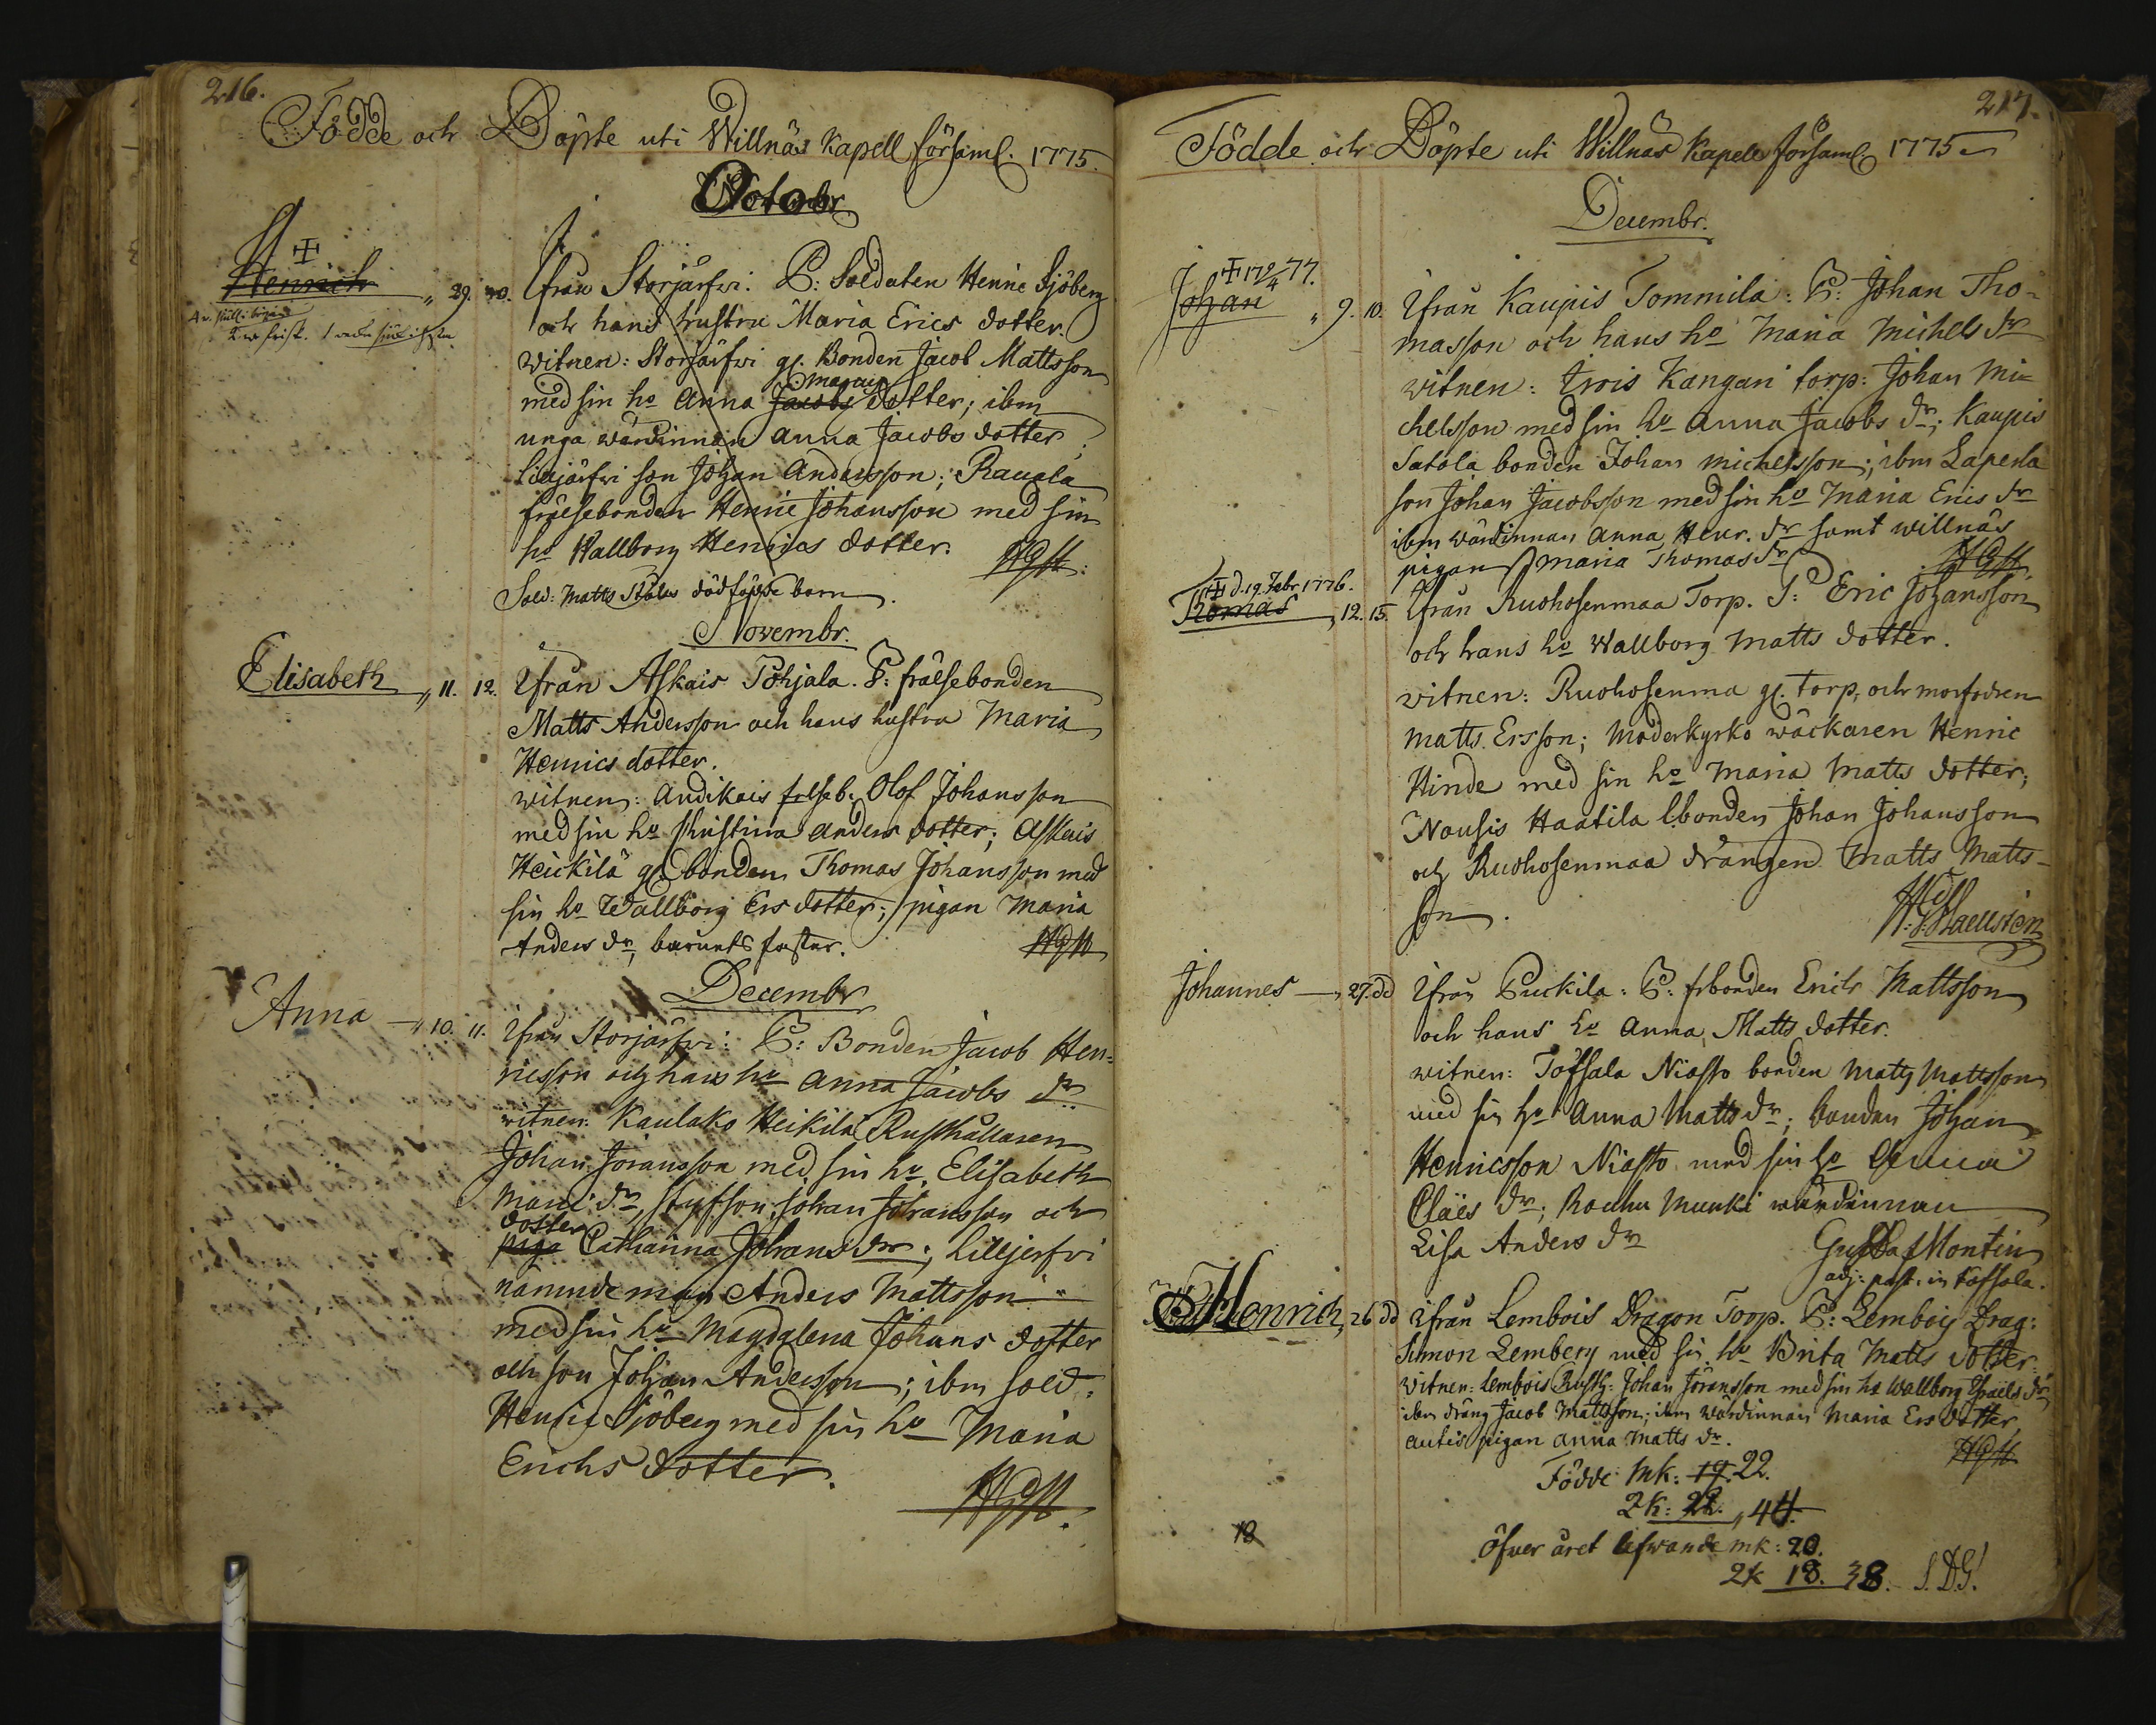 216.
Födde och Döpte uti Willnäs Kapell församl. 1775.
Octobr
Henrich „ 29. 30. Ifrån Storjärfvi. P: Soldaten Henric Sjöberg
och hans hustru Maria Erics dotter.
witnen: Storjärfvi gl. Bonden Jacob Mattsson
med sin ho Anna Jacobs dotter; ibm
unga wärdinnan Anna Jacobs dotter;
Lilljärfvi son Johan Andersson; Rauala
frälsebonden Henric Johansson med sin
ho Wallborg Henrics dotter. HGH.
Sold: Matts Ståles dödfödde barn.
Novembr.
Elisabeth „ 11. 12. Ifrån Askais Pohjala. P: frälsebonden
Matts Andersson och hans hustru Maria
Henrics dotter.
witnen: Andikais frelseb. Olof Johansson
med sin ho Christina Anders dotter; Askais
Heickilä gl. bonden Thomas Johansson med
sin ho Wallborg Ers dotter; pigan Maria
Anders dr, barnets faster. HGH
Decembr
Anna „ 10. 11. Ifrån Storjärfvi: P: Bonden Jacob Hen-
ricsson och hans ho Anna Jacobs dr.
witnen: Kaulaks Heikilä Rusthållaren
Johan Joransson med sin ho Elisabeth
dr, styfson Johan Johansson och
dotter
piga Catharina Johans dr; Lilljerfvi
nämndeman Anders Mattsson
med sin ho Magdalena Johans dotter
och son Johan Andersson; ibm sold:
Henric Sjöberg med sin ho Maria
Erichs dotter.
HGH.
217.
Födde och Döpte uti Willnäs Kapell församl 1775
Decembr.
17 9/4 77.
Johan „ 9. 10. Ifrån Kaupis Tommila: P: Johan Tho-
masson och hans ho Maria Michels dr
witnen: Kangari torp: Johan Mi-
chelsson med sin ho Anna Jacobs dr; Kaupis
Satola bonden Johan Michelsson; ibm Laperla
son Johan Jacobsson med sin ho Maria Erics dr
ibm wärdinnan Anna Henr. dr samt willnäs
pigan Maria Thomas dr HGH.
d. 19. Febr. 1776.
Thomas 12. 15. Ifrån Ruohosenmaa Torp. P: Eric Johansson
och hans ho Wallborg Matts dotter.
witnen: Ruohosenma gl. torp. och morfadren
Matts Ersson; Moderkyrko wäckaren Henric
Hinde med sin ho Maria Matts dotter;
Nousis Haatila bonden Johan Johansson
och Ruohosenmaa drängen Matts Matts-
son.
Johannes — 27. dd Ifrån Puckila: P: frbonden Erich Mattsson
och hans ho Anna Matts dotter.
witnen: Töfsala Niasto bonden Matts Mattsson
med sin ho Anna Matts dr; bonden Johan
Henricsson Niasto med sin ho Anna
Claes dr; Rouhu Munki wärdinnan
Lisa Anders dr Gustaf Montin
adj: past: in Töfsala.
Henrich, 26 dd Ifrån Lembois Dragon Torp. P: Lembois Drag:
Simon Lemberg med sin ho Brita Matts dotter.
witnen: Lembois Rusth: Johan Joransson med sin ho Wallborg Israels dr,
ibm dräng Jacob Mattsson; ibm wärdinnan Maria Ers dotter,
Autis pigan Anna Matts dr. HGH
Födde Mk: 19. 22.
2k: 22. „ 44.
18
Öfver året lefwande mk: 20.
2k 18. 38. S.D.G!